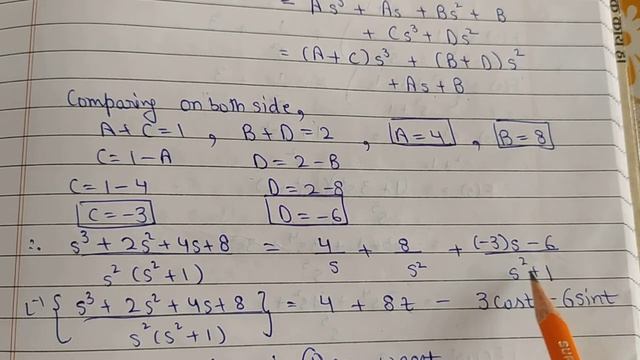 = As³ + As + Bs² + B
+ Cs³ + Ds²
= (A+C)s³ + (B+D)s²
+ As + B
Comparing on both side,
A+C=1 , B+D=2 , A=4 , B=8
C=1-A D=2-B
C=1-4 D=2-8
C=-3 D=-6
∴ s³ + 2s² + 4s + 8 / s²(s²+1) = 4/s + 8/s² + (-3)s - 6 / s²+1
L⁻¹ { s³ + 2s² + 4s + 8 / s²(s²+1) } = 4 + 8t - 3cost - 6sint